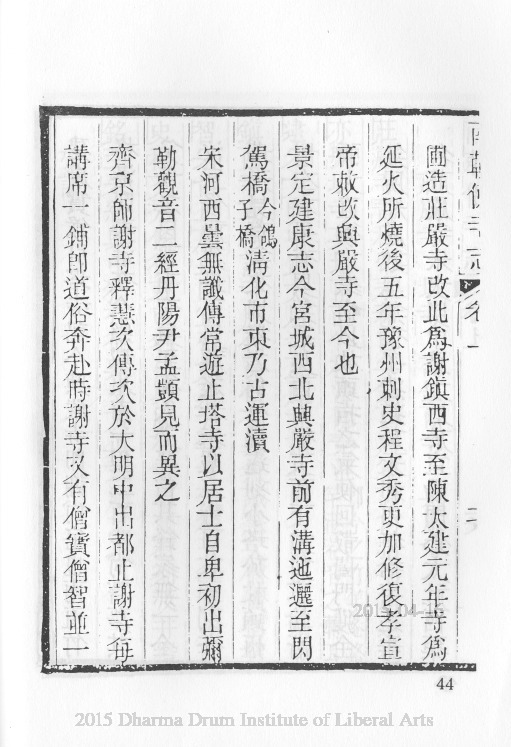 南朝佛寺志 卷一 二
圃造莊嚴寺改此為謝鎮西寺至陳太建元年寺為
延火所燒後五年豫州刺史程文秀更加修復孝宣
帝敕改興嚴寺至今也
景定建康志今宮城西北興嚴寺前有溝迤邐至閃
駕橋今鴿子橋清化市東乃古運瀆
宋河西曇無讖傳常遊止塔寺以居士自卑初出彌
勒觀音二經丹陽尹孟顗見而異之
齊京師謝寺釋慧次傳次於大明中出都止謝寺每
講席一鋪卽道俗奔赴時謝寺又有僧寶僧智並一
44
2015-04-
2015 Dharma Drum Institute of Liberal Arts